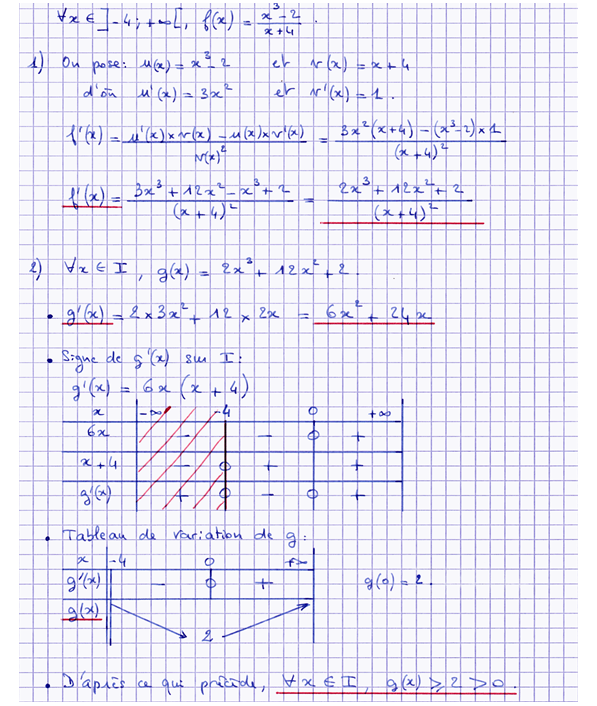 ∀x ∈ ]-4 ; +∞[, f(x) = (x³-2)/(x+4).
1) On pose : u(x) = x³-2 et v(x) = x+4
d'où u'(x) = 3x² et v'(x) = 1.
f'(x) = (u'(x)×v(x) - u(x)×v'(x))/(v(x)²) = (3x²(x+4) - (x³-2)×1)/((x+4)²)
f'(x) = (3x³ + 12x² - x³ + 2)/((x+4)²) = (2x³ + 12x² + 2)/((x+4)²)
2) ∀x ∈ I, g(x) = 2x³ + 12x² + 2.
• g'(x) = 2×3x² + 12×2x = 6x² + 24x
• Signe de g'(x) sur I :
g'(x) = 6x(x+4)
x -∞ -4 0 +∞
6x - - 0 +
x+4 - 0 + +
g'(x) + 0 - 0 +
• Tableau de variation de g :
x -4 0 +∞
g'(x) - 0 + g(0) = 2.
g(x)
2
• D'après ce qui précède, ∀x ∈ I, g(x) ⩾ 2 > 0.